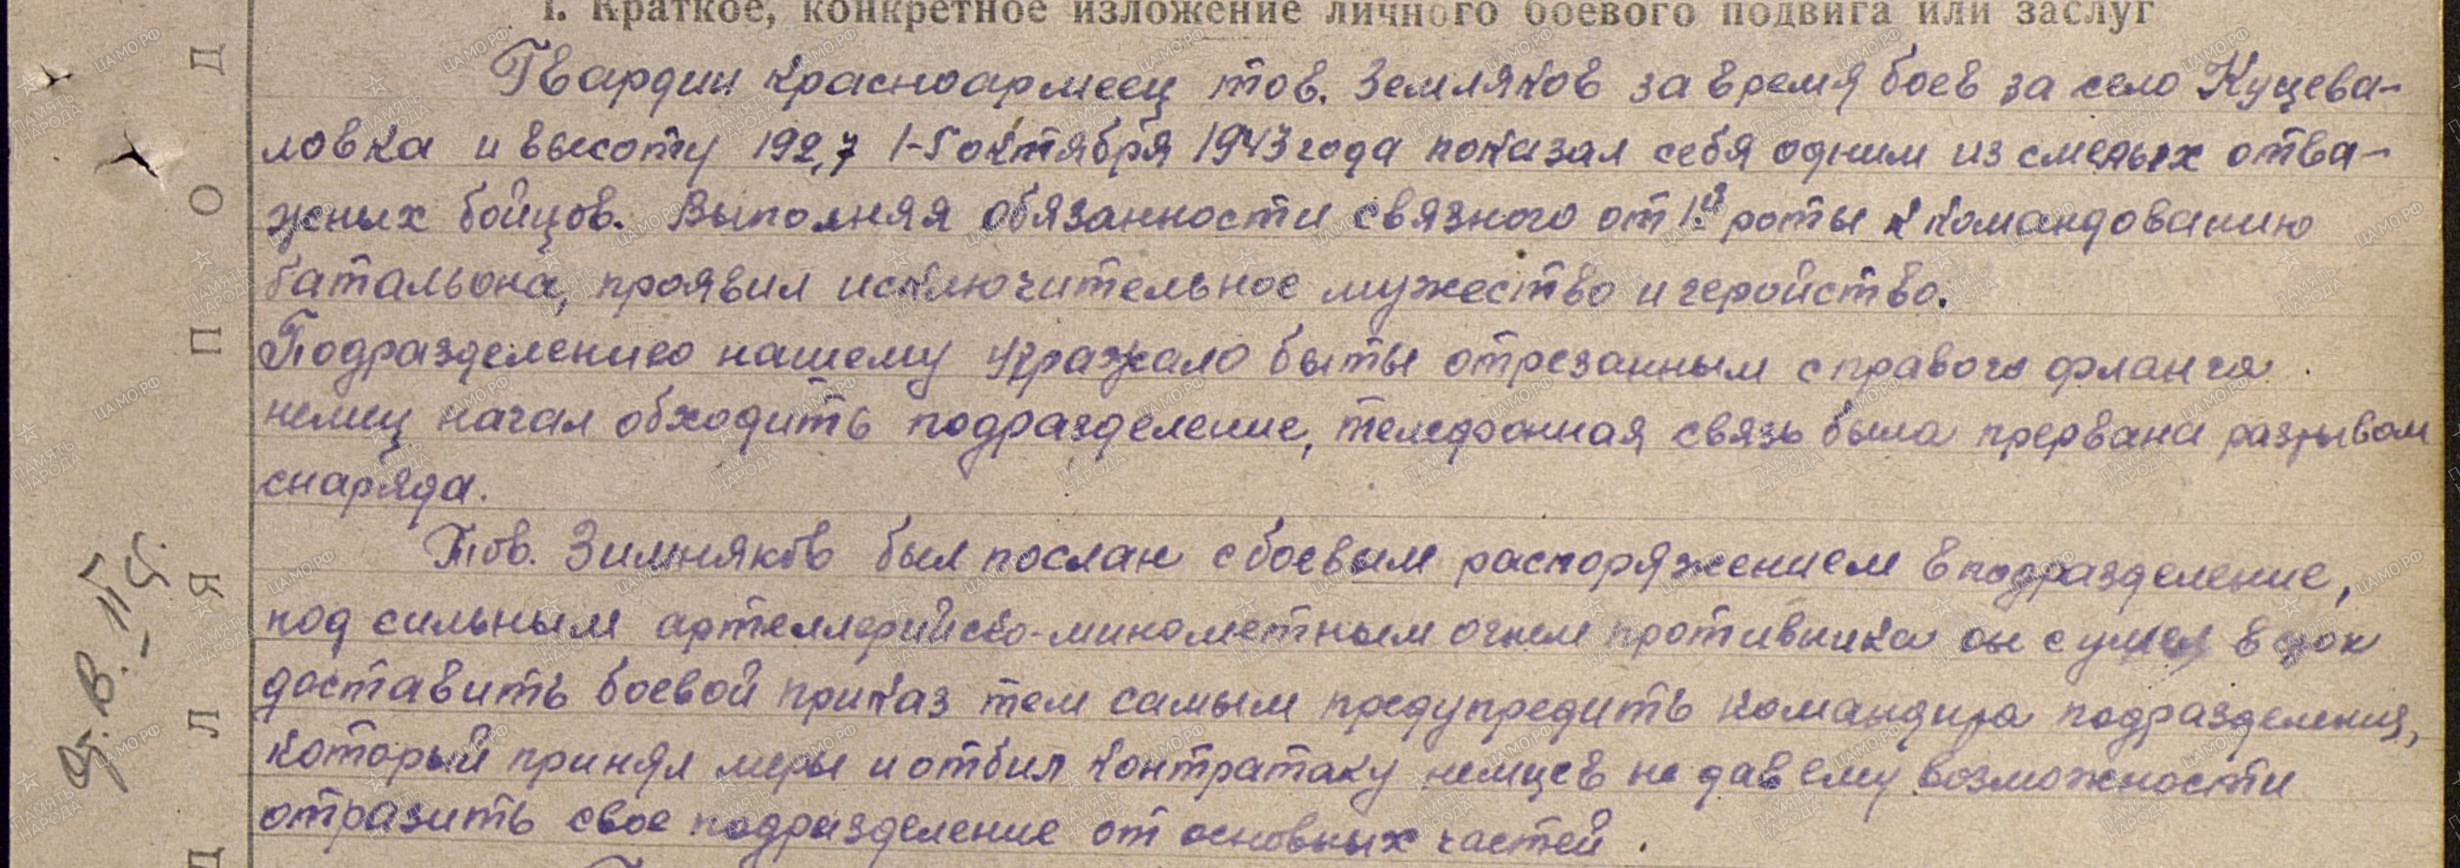 1. Краткое, конкретное изложение личного боевого подвига или заслуг
Гвардии красноармеец тов. Земляков за время боев за село Куцева-
ловка и высоту 192,7 1-5 октября 1943 года показал себя одним из смелых отва-
жных бойцов. Выполняя обязанности связного от 1й роты к командованию
батальона, проявил исключительное мужество и геройство.
Подразделению нашему угражало быть отрезанным с правого фланга
немец начал обходить подразделение, телефонная связь была прервана разрывом
снаряда.
Тов. Зимняков был послан с боевым распоряжением в подразделение,
под сильным артеллерийско-минометным огнем противника он сумел в срок
доставить боевой приказ тем самым предупредить командира подразделения,
который принял меры и отбил контратаку немцев не дав ему возможности
отразить свое подразделение от основных частей.
Д Л Я П О Д
ПАМЯТЬ НАРОДА
ЦАМО.РФ